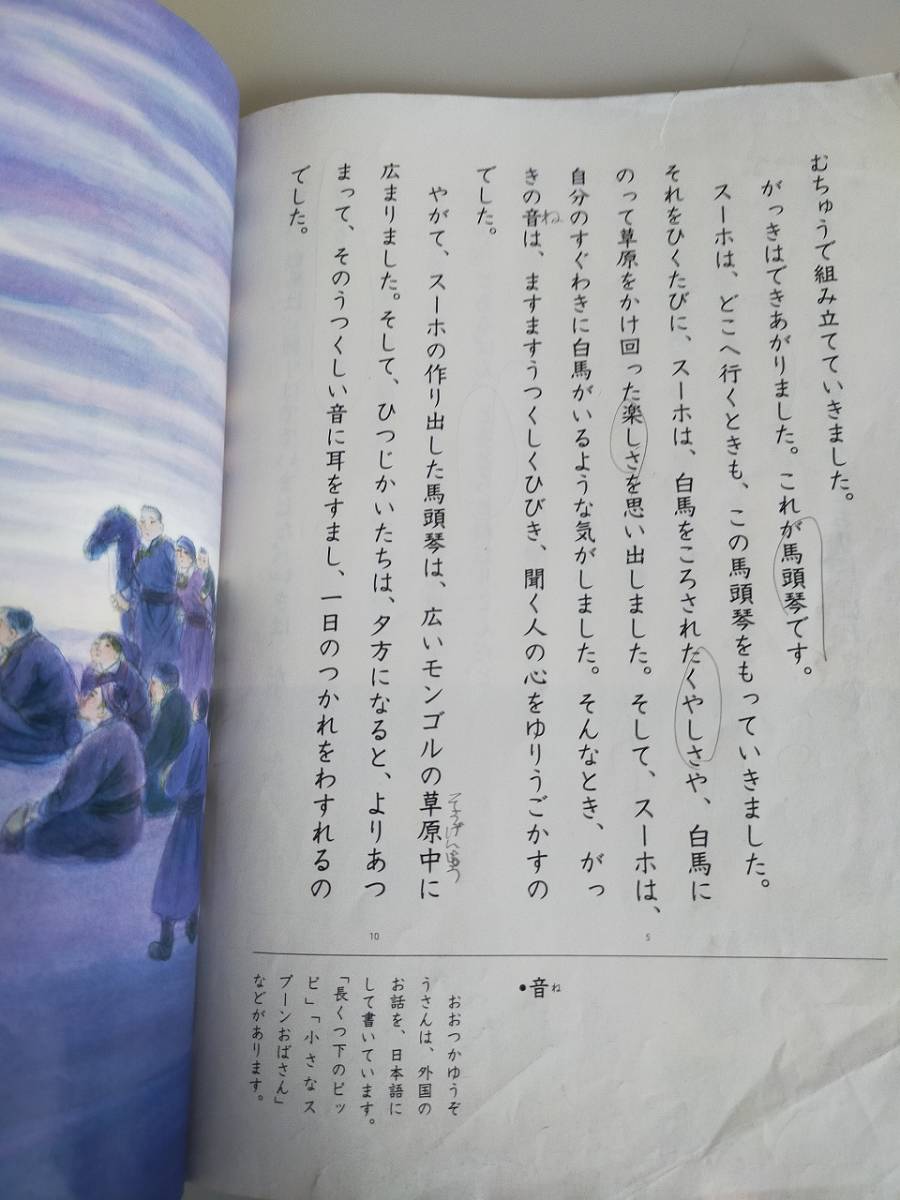 むちゅうで組み立てていきました。
がっきはできあがりました。これが馬頭琴です。
スーホは、どこへ行くときも、この馬頭琴をもっていきました。
それをひくたびに、スーホは、白馬をころされたくやしさや、白馬に
のって草原をかけ回った楽しさを思い出しました。そして、スーホは、
自分のすぐわきに白馬がいるような気がしました。そんなとき、がっ
きの音は、ますますうつくしくひびき、聞く人の心をゆりうごかすの
ね
でした。
やがて、スーホの作り出した馬頭琴は、広いモンゴルの草原中に
そうげんじゅう
広まりました。そして、ひつじかいたちは、夕方になると、よりあつ
まって、そのうつくしい音に耳をすまし、一日のつかれをわすれるの
でした。
5
10
●音
ね
おおつかゆうぞ
うさんは、外国の
お話を、日本語に
して書いています。
「長くつ下のピッ
ピ」「小さなス
プーンおばさん」
などがあります。